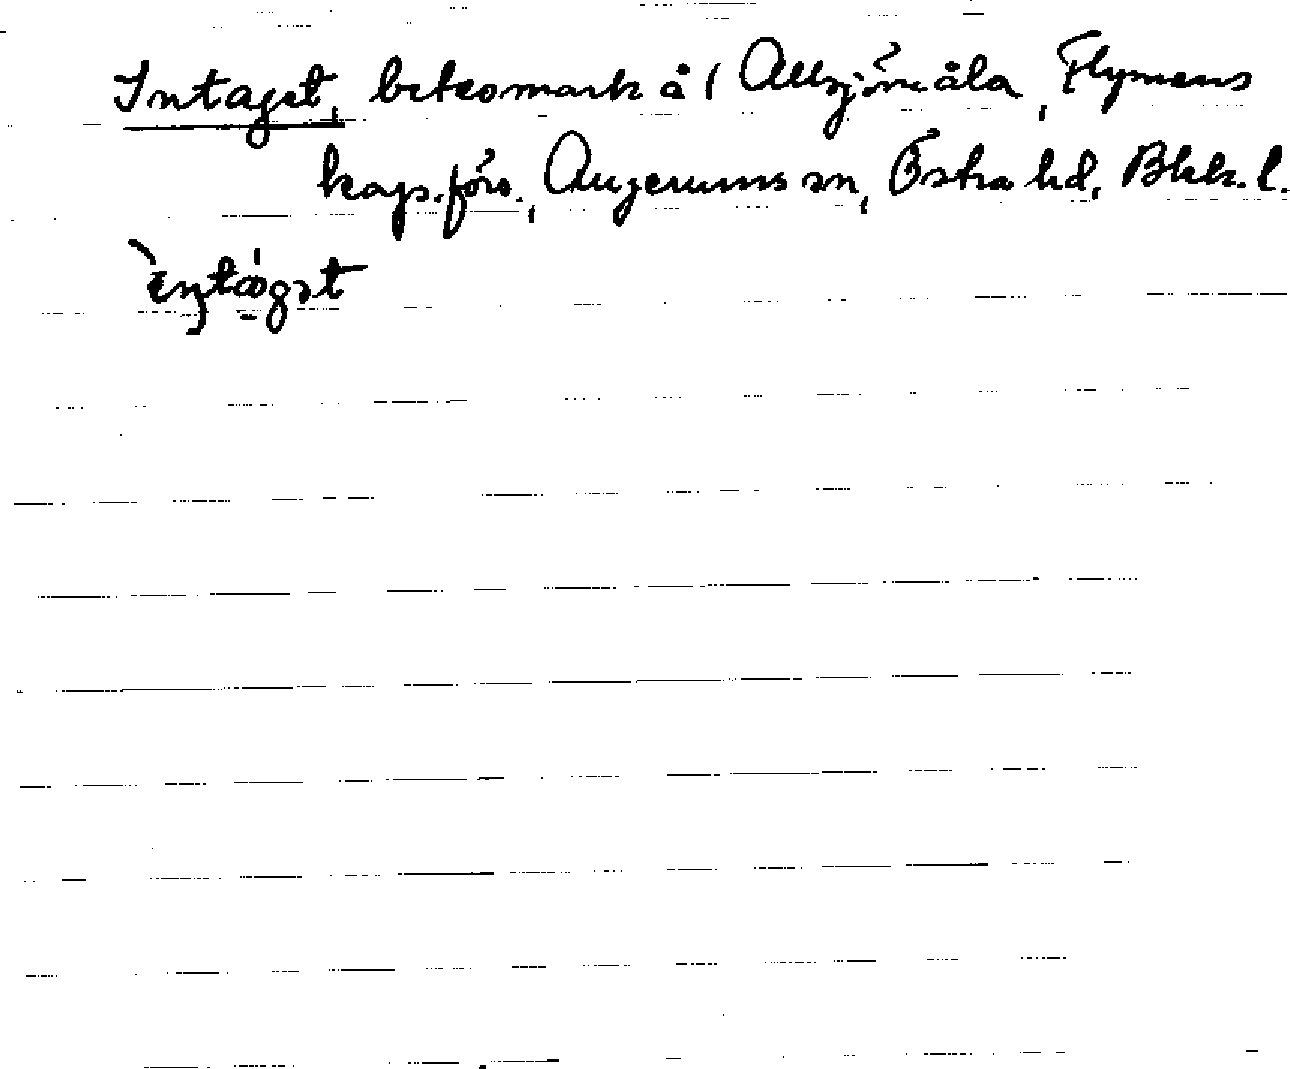 Intaget, betesmark å 1 Allsjömåla, Flymens
kap.förs., Augerums sn, Östra hd, Blek. l.